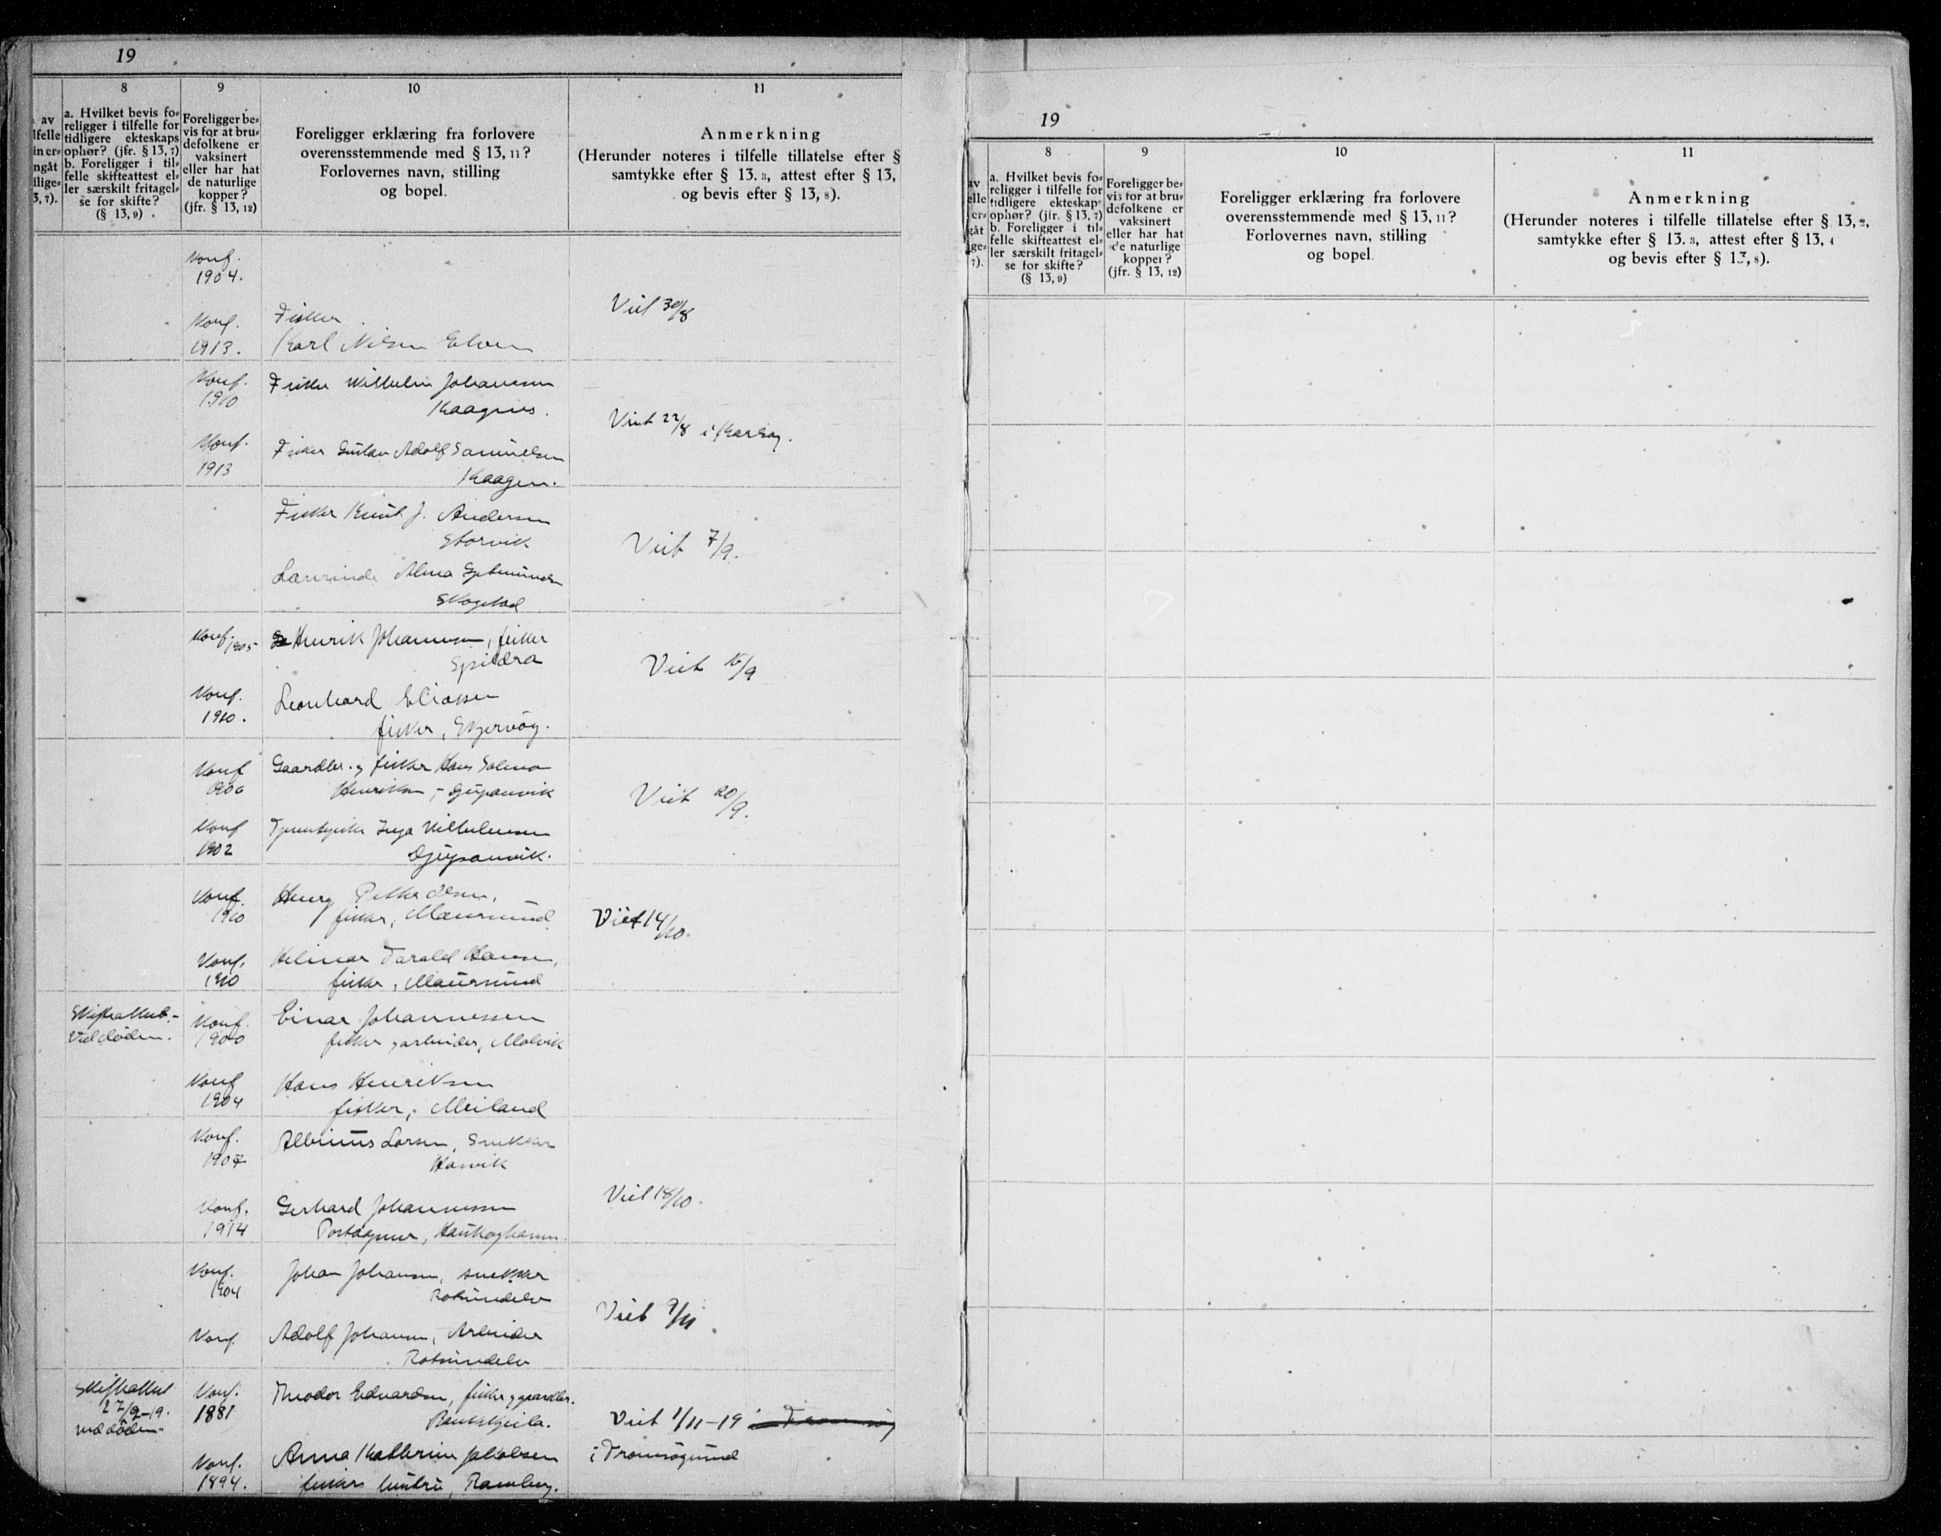 19
8
9
10
11
av
a. Hvilket bevis fo-
religger i tilfelle for
tidligere ekteskaps
ophør? (jfr. § 13, 7)
b. Foreligger i til-
felle skifteattest el-
ler særskilt fritagel-
se for skifte?
(§ 13, 9)
Foreligger be-
vis for at bru-
defolkene er
vaksinert
eller har hat
de naturlige
kopper?
(jfr. § 13, 12)
Foreligger erklæring fra forlovere
overensstemmende med § 13, 11?
Forlovernes navn, stilling
og bopel.
Anmerkning
(Herunder noteres i tilfelle tillatelse efter §
samtykke efter § 13. 3, attest efter § 13,
og bevis efter § 13, 8).
Konf.
1904.
Konf.
1913.
Fisker
Karl Nilsen Elven
Viet 30/8
Konf.
1910
Fisker Wilhelm Johansen
Kaagnes.
Konf.
1913
Fisker Gustav Adolf Samuelsen
Kaagen.
Viet 22/8 i
Fisker Knut J. Andersen
Storvik
Lærerinde Alma
Skogstad
Viet 7/9.
Konf. 1905
Henrik Johannesen, fisker
Spildra
Konf.
1910.
Leonhard Eliassen
fisker, Skjervøy.
Viet 15/9
Konf
1906
Gaardbr. og fisker Hans
Henriksen, Djupanvik
Konf
1902
Inga Vilhelmsen
Djupanvik.
Viet 20/9.
Konf.
1910
Henry Petter Olsen,
fisker, Maursund.
Konf.
1910
Hilmar Harald Hansen,
fisker, Maursund
Viet 14/10.
Skifteattest.-
Ved døden.
Konf.
1900
Einar Johannessen
fisker, arbeider, Molvik
Konf
1904
Hans Henriksen
fisker, Meiland
Konf.
1907
Albinus Larsen, Snekker
Havik
Konf.
1914
Gerhard Johannessen
Viet 18/10.
Konf.
1904
Johan Johansen, snekker
Rotsundelv
Konf.
Adolf Johansen, Arbeider
Rotsundelv
Viet 9/11.
Skifteattest
27/9-19.
ved døden.
Konf.
1881
Theodor Edvardsen, fisker og gaardbr.
Viet 1/11-19
Konf.
1894.
Anna Kathrine Jakobsen
fiskers hustru,
i Tromsøysund
19
8
9
10
11
a. Hvilket bevis fo-
religger i tilfelle for
tidligere ekteskaps
ophør? (jfr. § 13, 7)
b. Foreligger i til-
felle skifteattest el-
ler særskilt fritagel-
se for skifte?
(§ 13, 9)
Foreligger be-
vis for at bru-
defolkene er
vaksinert
eller har hat
de naturlige
kopper?
(jfr. § 13, 12)
Foreligger erklæring fra forlovere
overensstemmende med § 13, 11?
Forlovernes navn, stilling
og bopel.
Anmerkning
(Herunder noteres i tilfelle tillatelse efter § 13, 2,
samtykke efter § 13. 3, attest efter § 13, 4
og bevis efter § 13, 8).